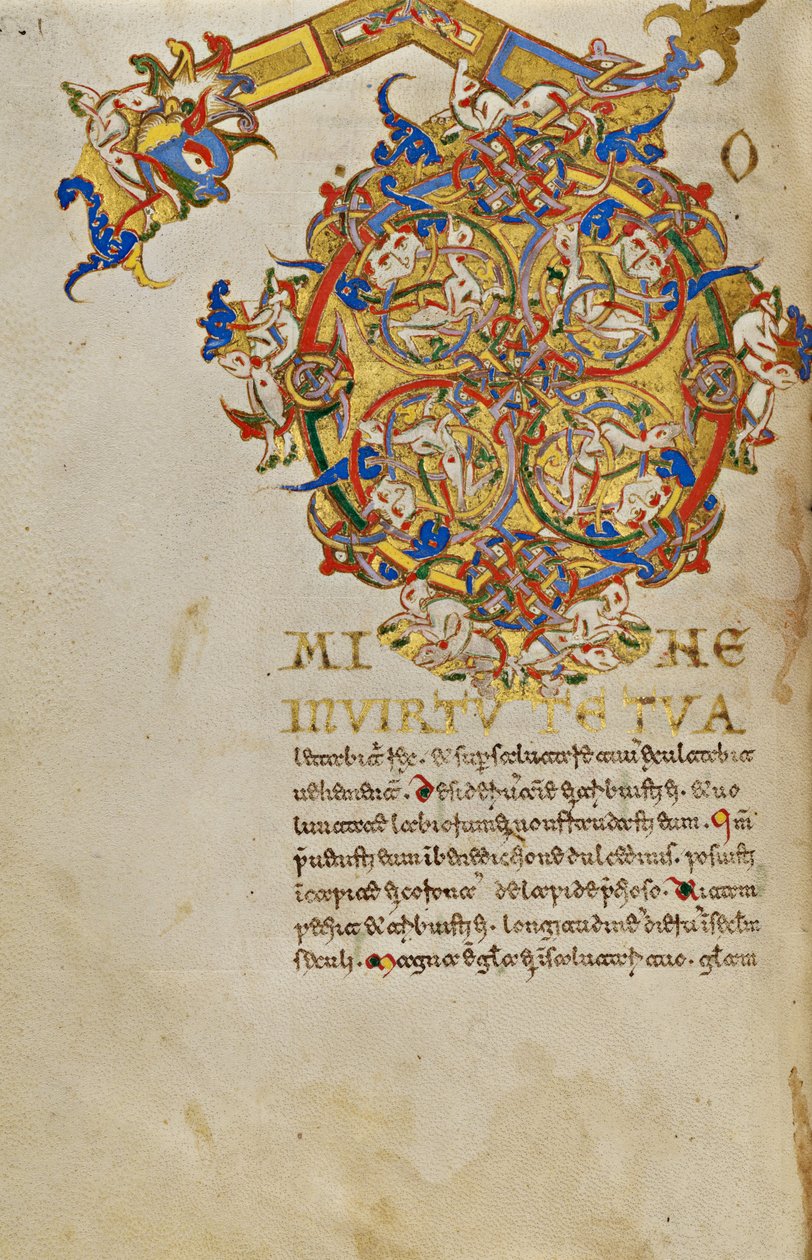 D O
MI NE
IN VIRTU TE TUA
letabit̄ rex. & sup salutare tuū exultabit
uehem̄t̄. Desideriū aīe ei tribuisti ei. & uo
luntate labiorum ei non fraudasti eum. Qm̄
p̄uenisti eum ī benedictione dulcedinis. posuisti
ī capite ei coronā de lapide p̄tioso. Uitam
petiit & tribuisti ei. longitudinē dierū ī sc̄lm
seculi. Magna ē gl̄a ei ī salutari tuo. gl̄am